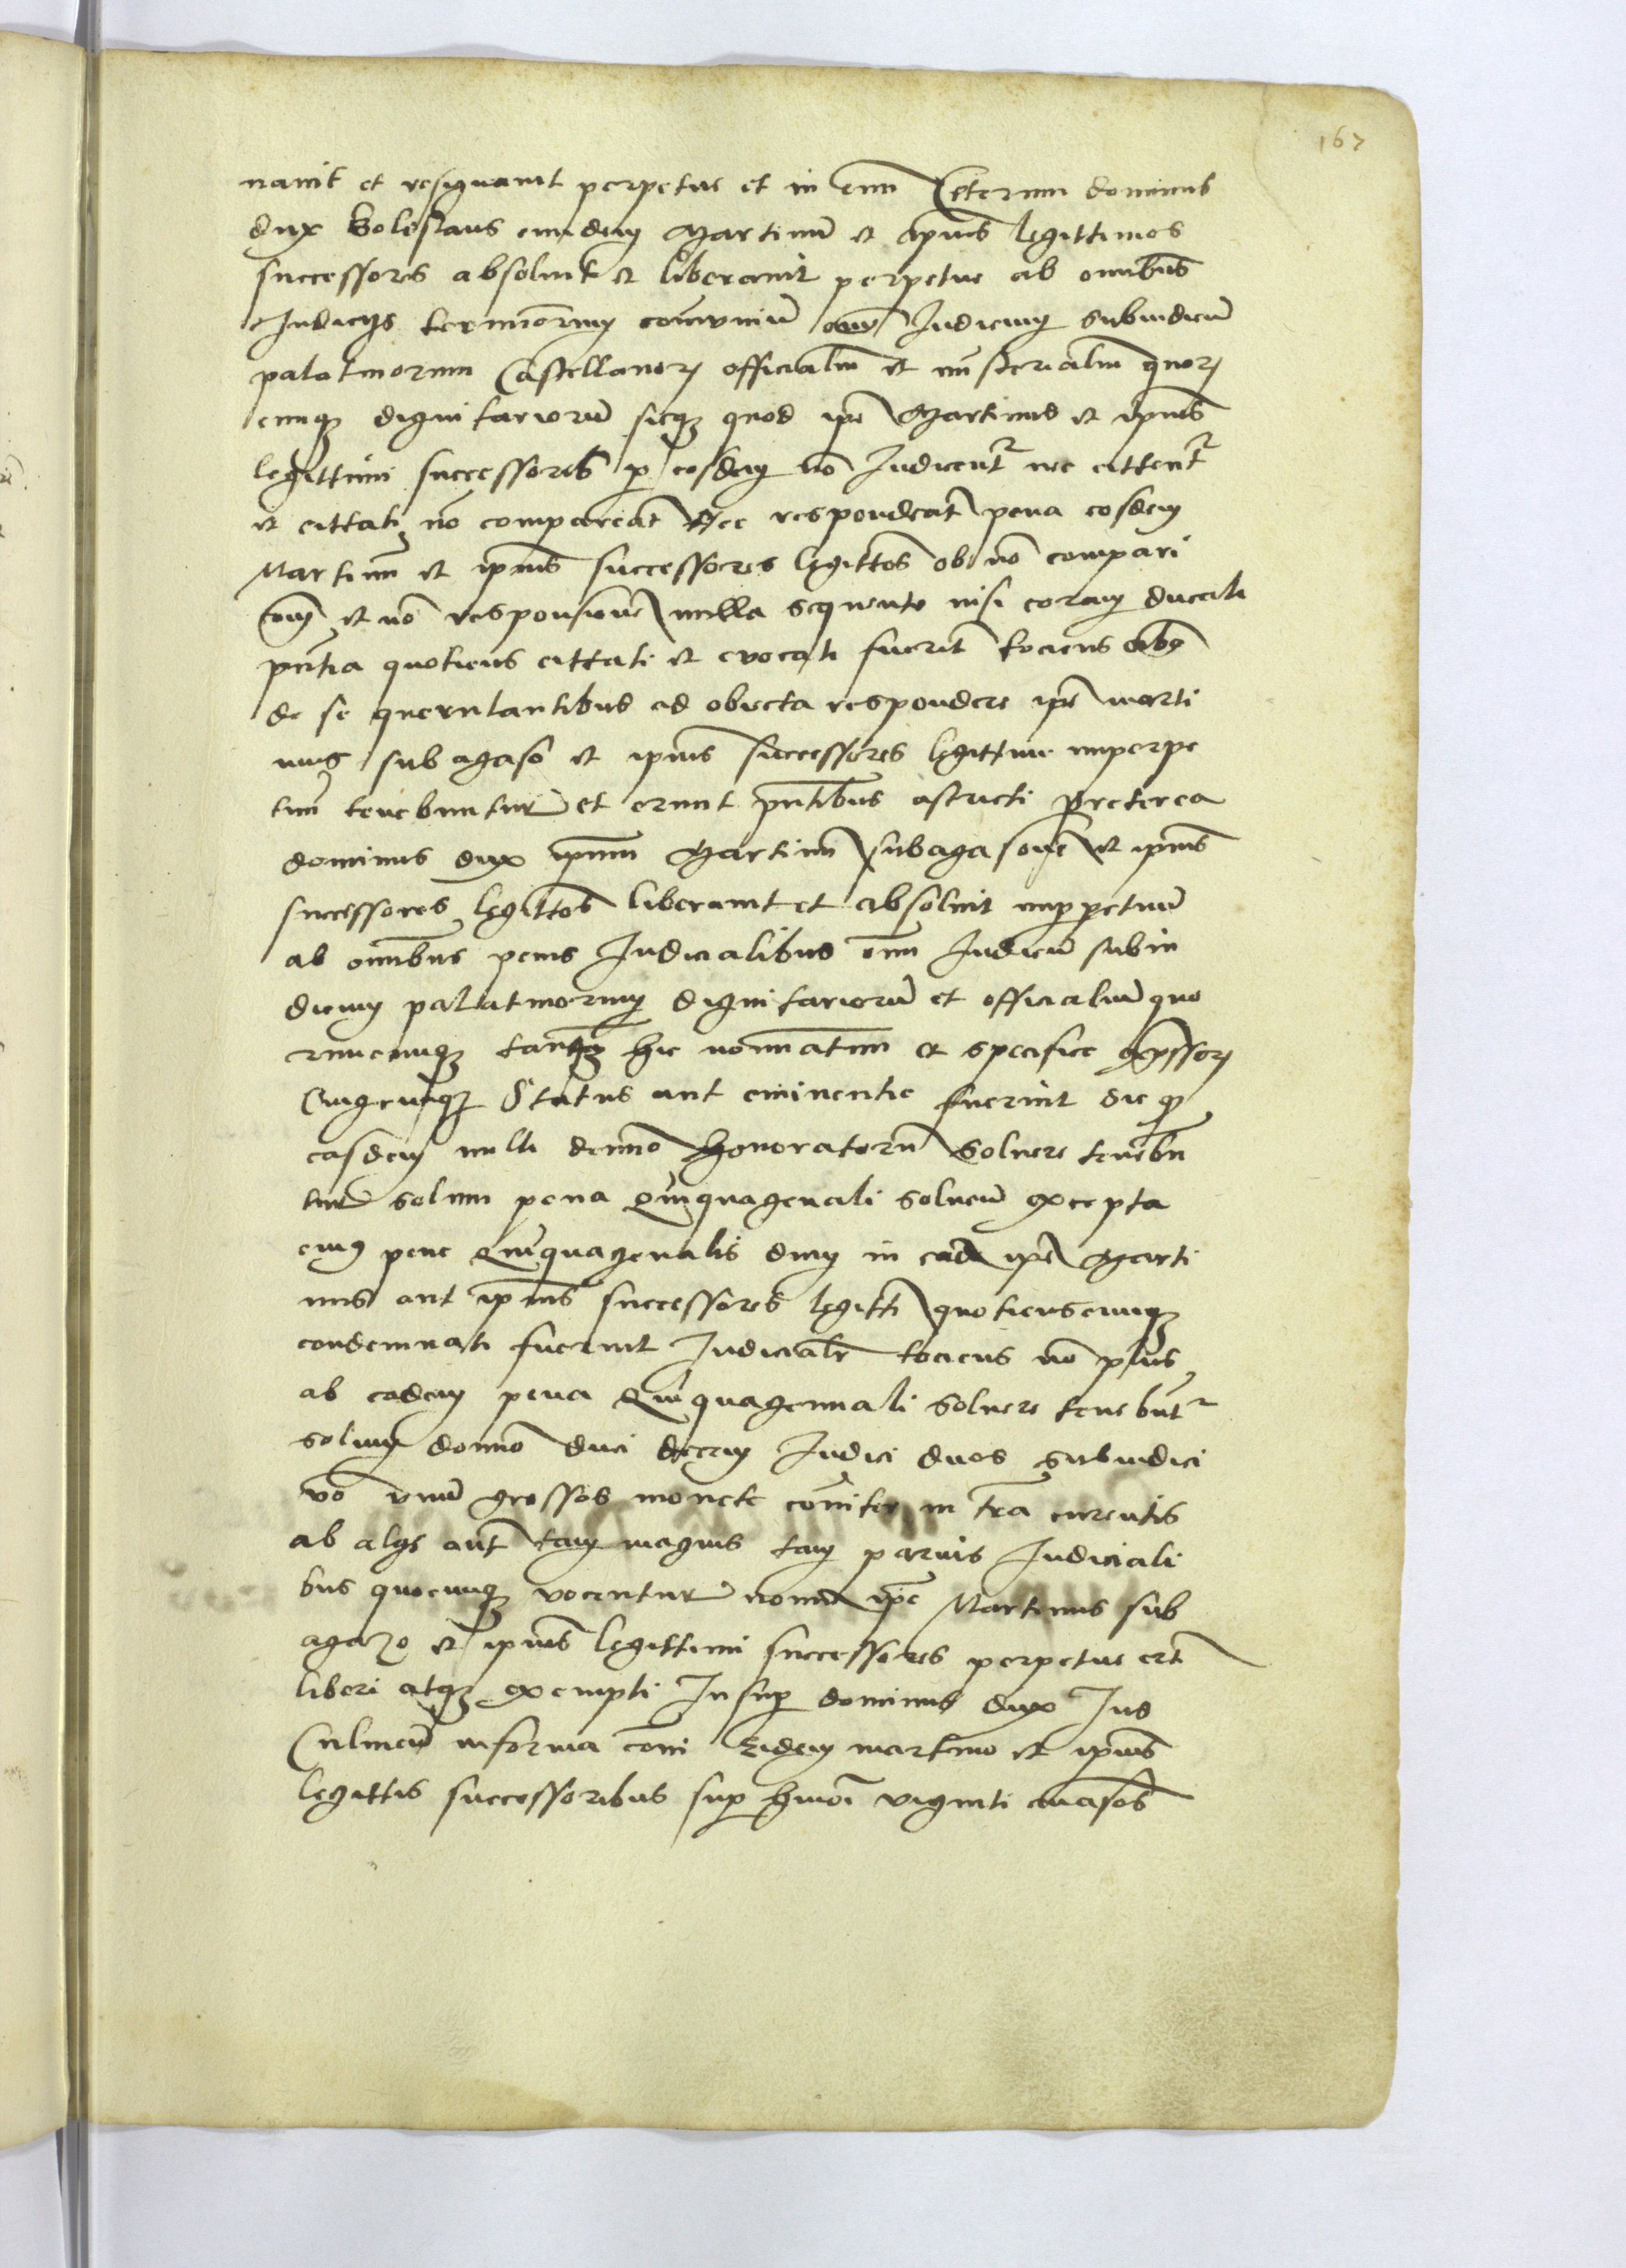 167
navit et resignavit perpetue et in evum Ceterum dominus
dux Boleslaus eundem Martinum et ipius legittimos
successores absolvit et liberavit perpetue ab omnibus
Judicijs terminorum comunium omnium Judicum subiudicum
palatinorum Castellanorum officialium et ministerialium quorum
cunque dignitariorum sicque quod ipe Martinus et ipius
legittimi successores per eosdem no Judicentur nec cittentur
et cittati no compareant nec respondeant pena eosdem
Martinum et ipius successores legittos ob no compari
cionem et no responsione nulla sequente nisi coram ducali
pntia quotiens cittati et evocati fuerint tociens
de se querulantibus ad obiecta respondere ipe marti
nus subagaso et ipius successores legittime imperpe
tuum tenebuntur et erunt pntibus astricti Preterea
dominus dux ipum Martinum subagasone et ipius
successores legittos liberavit et absolvit imperpetuum
ab omnibus penis Judicialibus omnium Judicum subiu
dicum palatinorum dignitariorum et officialium quo
rumcunque tanquam hic nominatim et specifice expressorum
Cuiuscunque Status aut eminentie fuerint Sic quod
easdem nulli demno honoratorum Solvere tenebun
tur solum pena Quinquagenali solvenda excepta
cuius pene Quinquagenalis dum in eadem ipe Marti
nus aut ipius successores legitti quotienscunque
condemnati fuerint Judicialr tociens no plus
ab eadem pena Quinquagennali Solvere tenebuntur
solum domino duci decem Judici duos Subiudici
vo unum grossos monete comiter in tra currentis
ab alys autem tam magnis tam parvis Judiciali
bus quocunque vocentur nomine ipe Martinus sub
agazo et ipius legittimi successores perpetue erunt
liberi atque exempti Insuper dominus dux Jus
Culmense in forma coni Eidem martino et ipius
legittis successoribus super huiusmodi viginti mansos